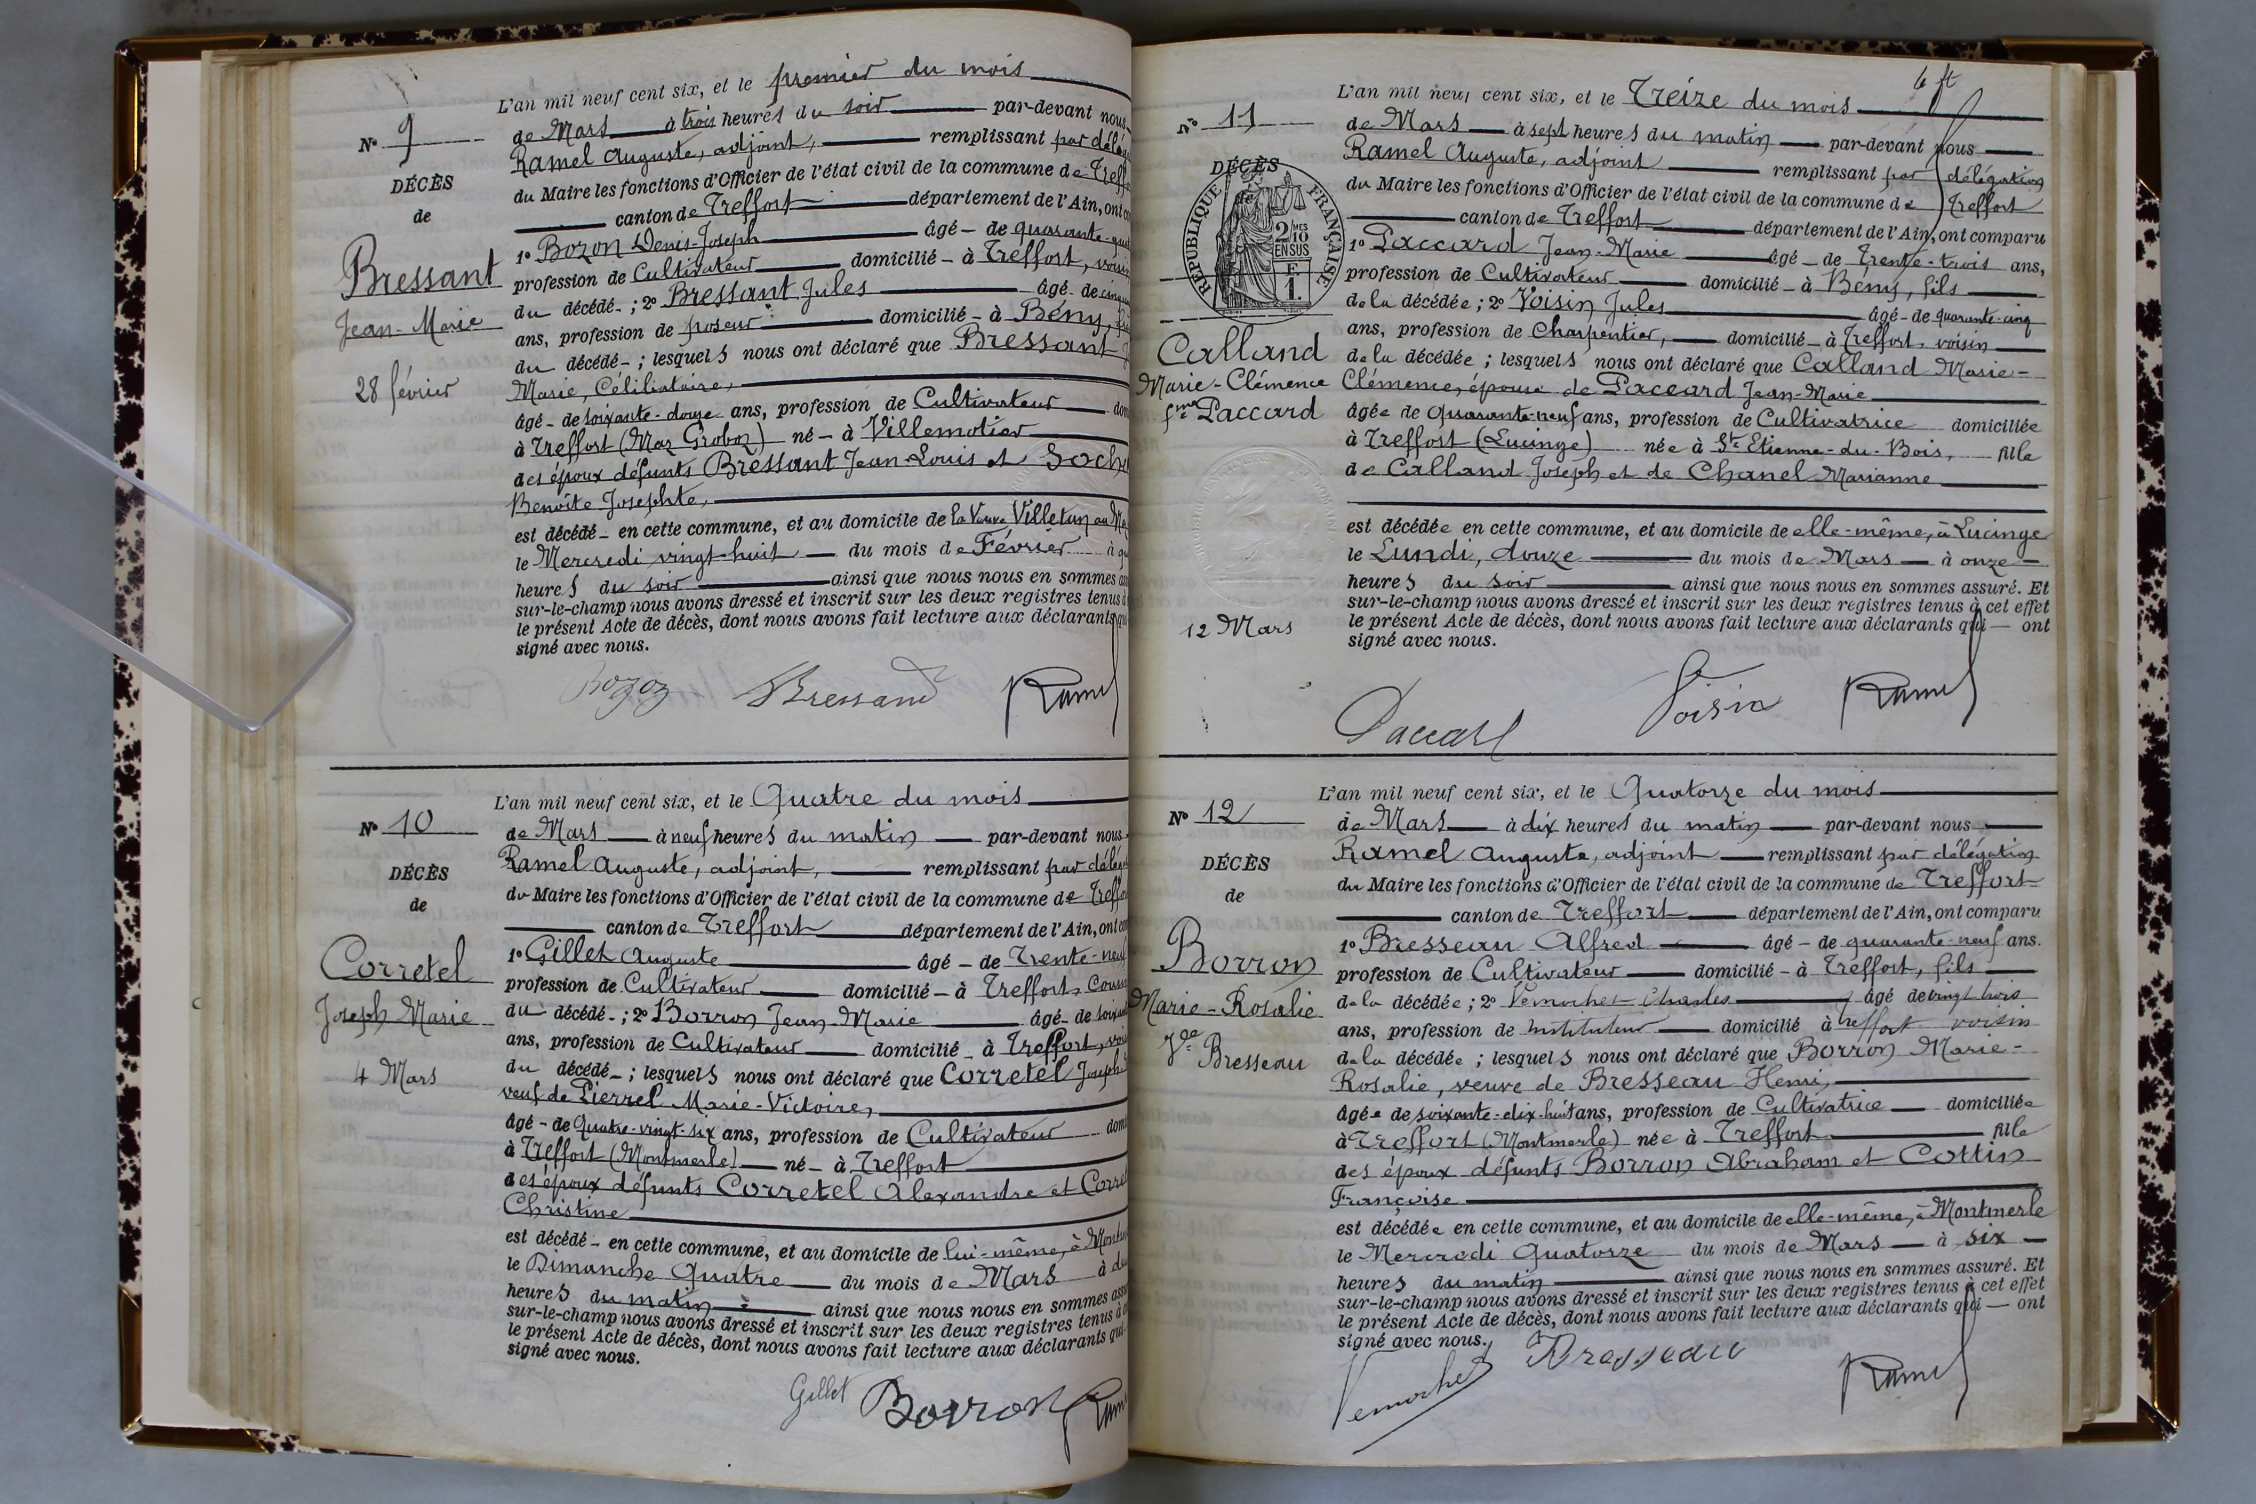 L'an mil neuf cent six, et le premier du mois
de Mars à trois heures du soir par-devant nous
Ramel Auguste, adjoint, remplissant par délég
du Maire les fonctions d'Officier de l'état civil de la commune de Treff
canton de Treffort département de l'Ain, ont
1º Bozon Denis-Joseph âgé de quarante-
profession de Cultivateur domicilié à Treffort, voisin
du décédé ; 2º Bressant Jules âgé de cinqu
ans, profession de poseur domicilié à Bény,
du décédé ; lesquels nous ont déclaré que Bressant
Marie, Célibataire,
âgé de soixante-douze ans, profession de Cultivateur dom
à Treffort (Mas Groboz) né à Villemotier
des époux défunts Bressant Jean-Louis et Soche
Benoîte Josephte,
est décédé en cette commune, et au domicile de la Veuve Villetun au
le Mercredi vingt-huit du mois de Février à
heures du soir ainsi que nous nous en sommes
sur-le-champ nous avons dressé et inscrit sur les deux registres tenus
le présent Acte de décès, dont nous avons fait lecture aux déclarants
signé avec nous.
Bozon Bressand Ramel
Nº 9
DÉCÈS
de
Bressant
Jean-Marie
28 février
L'an mil neuf cent six, et le Quatre du mois
de Mars à neuf heures du matin par-devant nous
Ramel Auguste, adjoint, remplissant par délég
du Maire les fonctions d'Officier de l'état civil de la commune de Treff
canton de Treffort département de l'Ain, ont
1º Gillet Auguste âgé de Trente-neuf
profession de Cultivateur domicilié à Treffort, Cous
du décédé ; 2º Borron Jean-Marie âgé de soixan
ans, profession de Cultivateur domicilié à Treffort, voi
du décédé ; lesquels nous ont déclaré que Corretel Joseph
veuf de Pierrel Marie-Victoire,
âgé de Quatre-vingt-six ans, profession de Cultivateur dom
à Treffort (Montmerle) né à Treffort
des époux défunts Corretel Alexandre et Corre
Christine
est décédé en cette commune, et au domicile de lui-même, à Montm
le Dimanche Quatre du mois de Mars à
heures du matin ainsi que nous nous en sommes ass
sur-le-champ nous avons dressé et inscrit sur les deux registres tenus à
le présent Acte de décès, dont nous avons fait lecture aux déclarants qui
signé avec nous.
Gillet Borron Ram
Nº 10
DÉCÈS
de
Corretel
Joseph Marie
4 Mars
6 ft
L'an mil neuf cent six, et le Treize du mois
de Mars à sept heures du matin par-devant nous
Ramel Auguste, adjoint remplissant par délégation
du Maire les fonctions d'Officier de l'état civil de la commune de Treffort
canton de Treffort département de l'Ain, ont comparu
1º Paccard Jean-Marie âgé de Trente-trois ans,
profession de Cultivateur domicilié à Bény, fils
de la décédée ; 2º Voisin Jules âgé de quarante-cinq
ans, profession de Charpentier, domicilié à Treffort, voisin
de la décédée ; lesquels nous ont déclaré que Calland Marie-
Clémence, épouse de Paccard Jean-Marie
âgée de Quarante-neuf ans, profession de Cultivatrice domiciliée
à Treffort (Lucinge) née à St Etienne-du-Bois, fille
de Calland Joseph et de Chanel Marianne
est décédée en cette commune, et au domicile de elle-même, à Lucinge
le Lundi, douze du mois de Mars à onze
heures du soir ainsi que nous nous en sommes assuré. Et
sur-le-champ nous avons dressé et inscrit sur les deux registres tenus à cet effet
le présent Acte de décès, dont nous avons fait lecture aux déclarants qui ont
signé avec nous.
Paccard Voisin Ramel
Nº 11
DÉCÈS
de
RÉPUBLIQUE FRANÇAISE
2/10 MES
EN SUS
F.
1.
Calland
Marie-Clémence
fme Paccard
12 Mars
L'an mil neuf cent six, et le Quatorze du mois
de Mars à dix heures du matin par-devant nous
Ramel Auguste, adjoint remplissant par délégation
du Maire les fonctions d'Officier de l'état civil de la commune de Treffort
canton de Treffort département de l'Ain, ont comparu
1º Bresseau Alfred âgé de quarante-neuf ans.
profession de Cultivateur domicilié à Treffort, fils
de la décédée ; 2º Vernochet Charles âgé de vingt trois
ans, profession de Instituteur domicilié à Treffort voisin
de la décédée ; lesquels nous ont déclaré que Borron Marie-
Rosalie, veuve de Bresseau Henri,
âgée de soixante-dix-huit ans, profession de Cultivatrice domiciliée
à Treffort (Montmerle) née à Treffort fille
des époux défunts Borron Abraham et Cottin
Françoise
est décédée en cette commune, et au domicile de elle-même, à Montmerle
le Mercredi Quatorze du mois de Mars à six
heures du matin ainsi que nous nous en sommes assuré. Et
sur-le-champ nous avons dressé et inscrit sur les deux registres tenus à cet effet
le présent Acte de décès, dont nous avons fait lecture aux déclarants qui ont
signé avec nous.
Vernochet Bresseau Ramel
Nº 12
DÉCÈS
de
Borron
Marie-Rosalie
Vve Bresseau